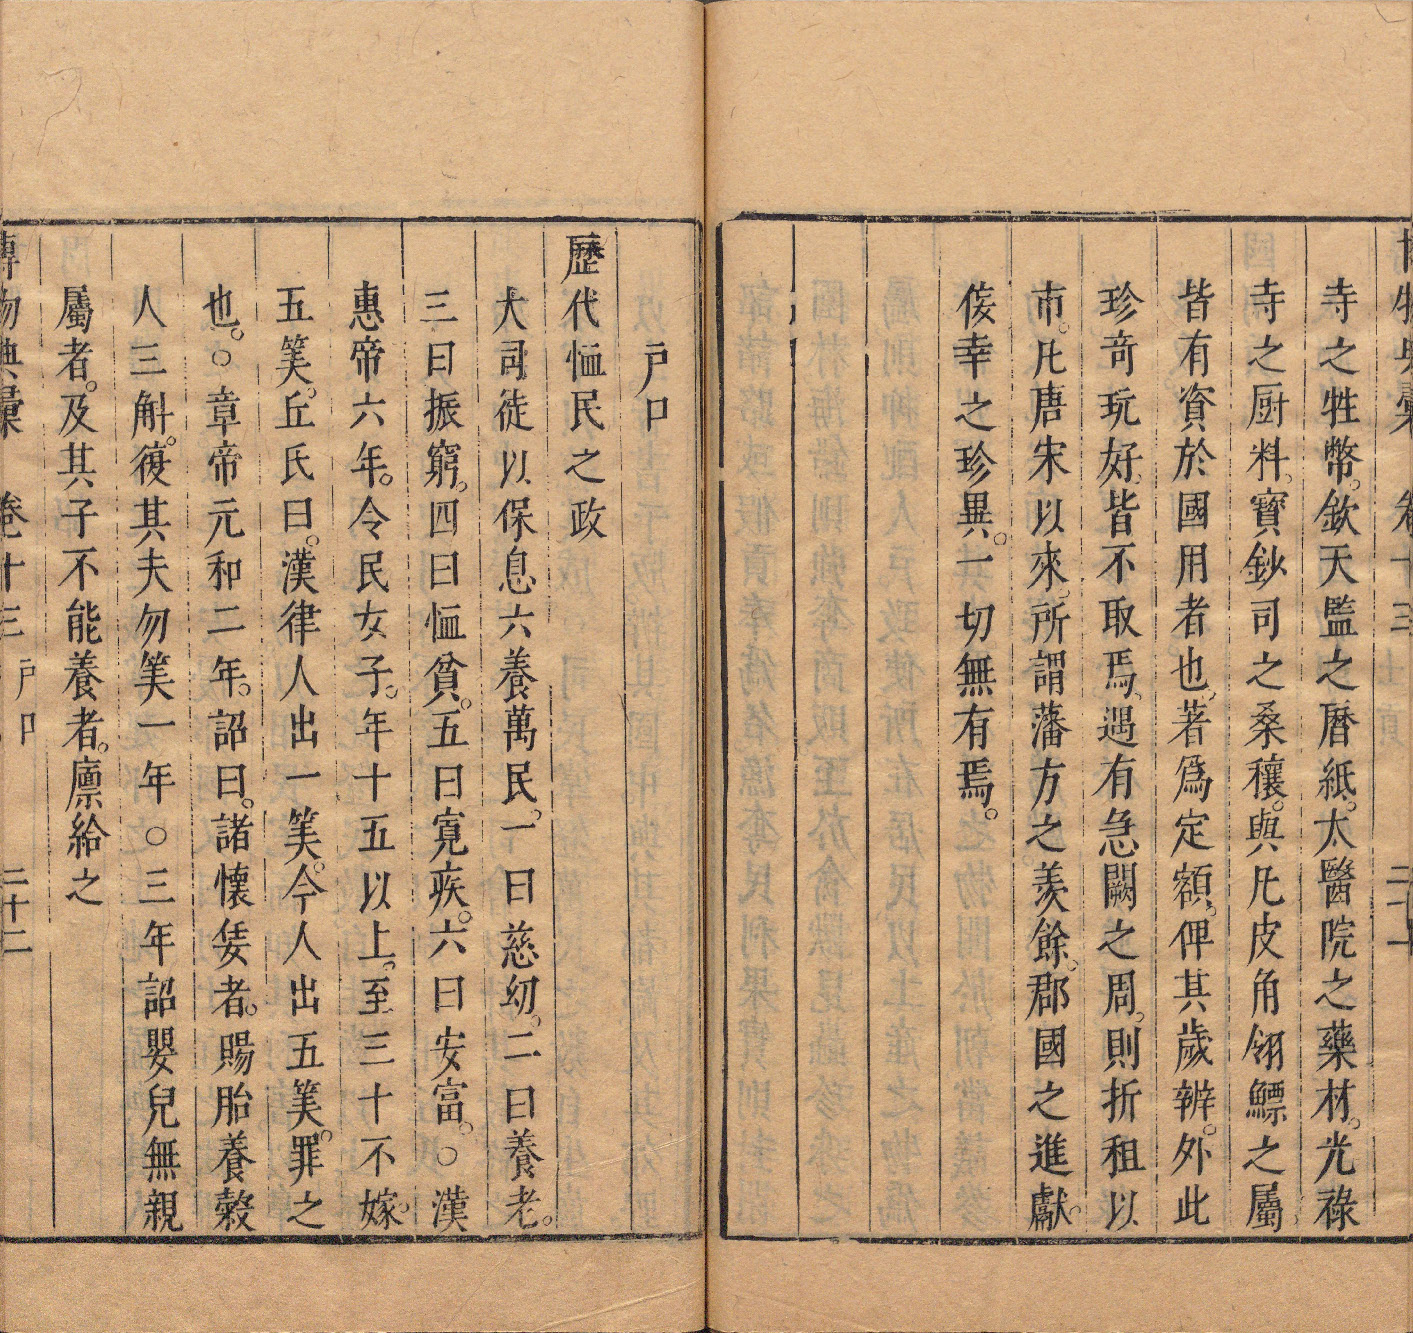 博物典彙 卷十三 土貢 二十一
寺之牲幣。欽天監之曆紙。太醫院之藥材。光祿
寺之厨料。寶鈔司之桑穰。與凡皮角翎鰾之屬
皆有資於國用者也。著爲定額。俾其歲辦。外此
珍奇玩好。皆不取焉。遇有急闕之周。則折租以
市。凡唐宋以來。所謂藩方之羨餘。郡國之進獻。
倿幸之珍異。一切無有焉。
戸口
歷代恤民之政
大司徒以保息六養萬民。一曰慈幼。二曰養老。
三曰振窮。四曰恤貧。五曰寬疾。六曰安富。○漢
惠帝六年。令民女子。年十五以上。至三十不嫁。
五筭。丘氏曰。漢律人出一筭。今人出五筭。罪之
也。○章帝元和二年。詔曰。諸懷妊者。賜胎養穀
人三斛。復其夫勿筭一年○三年詔嬰兒無親
屬者。及其子不能養者。廪給之
博物典彙 卷十三 戸口 二十二